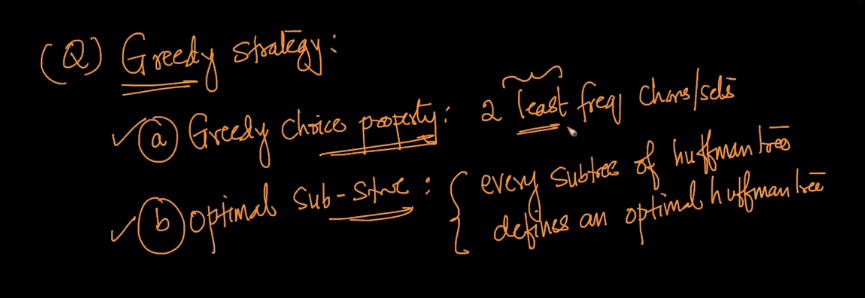 (Q) Greedy strategy:
✓ (a) Greedy choice property: 2 least freq chars/sets
✓ (b) optimal sub-struc : { every subtree of huffman tree
defines an optimal huffman tree